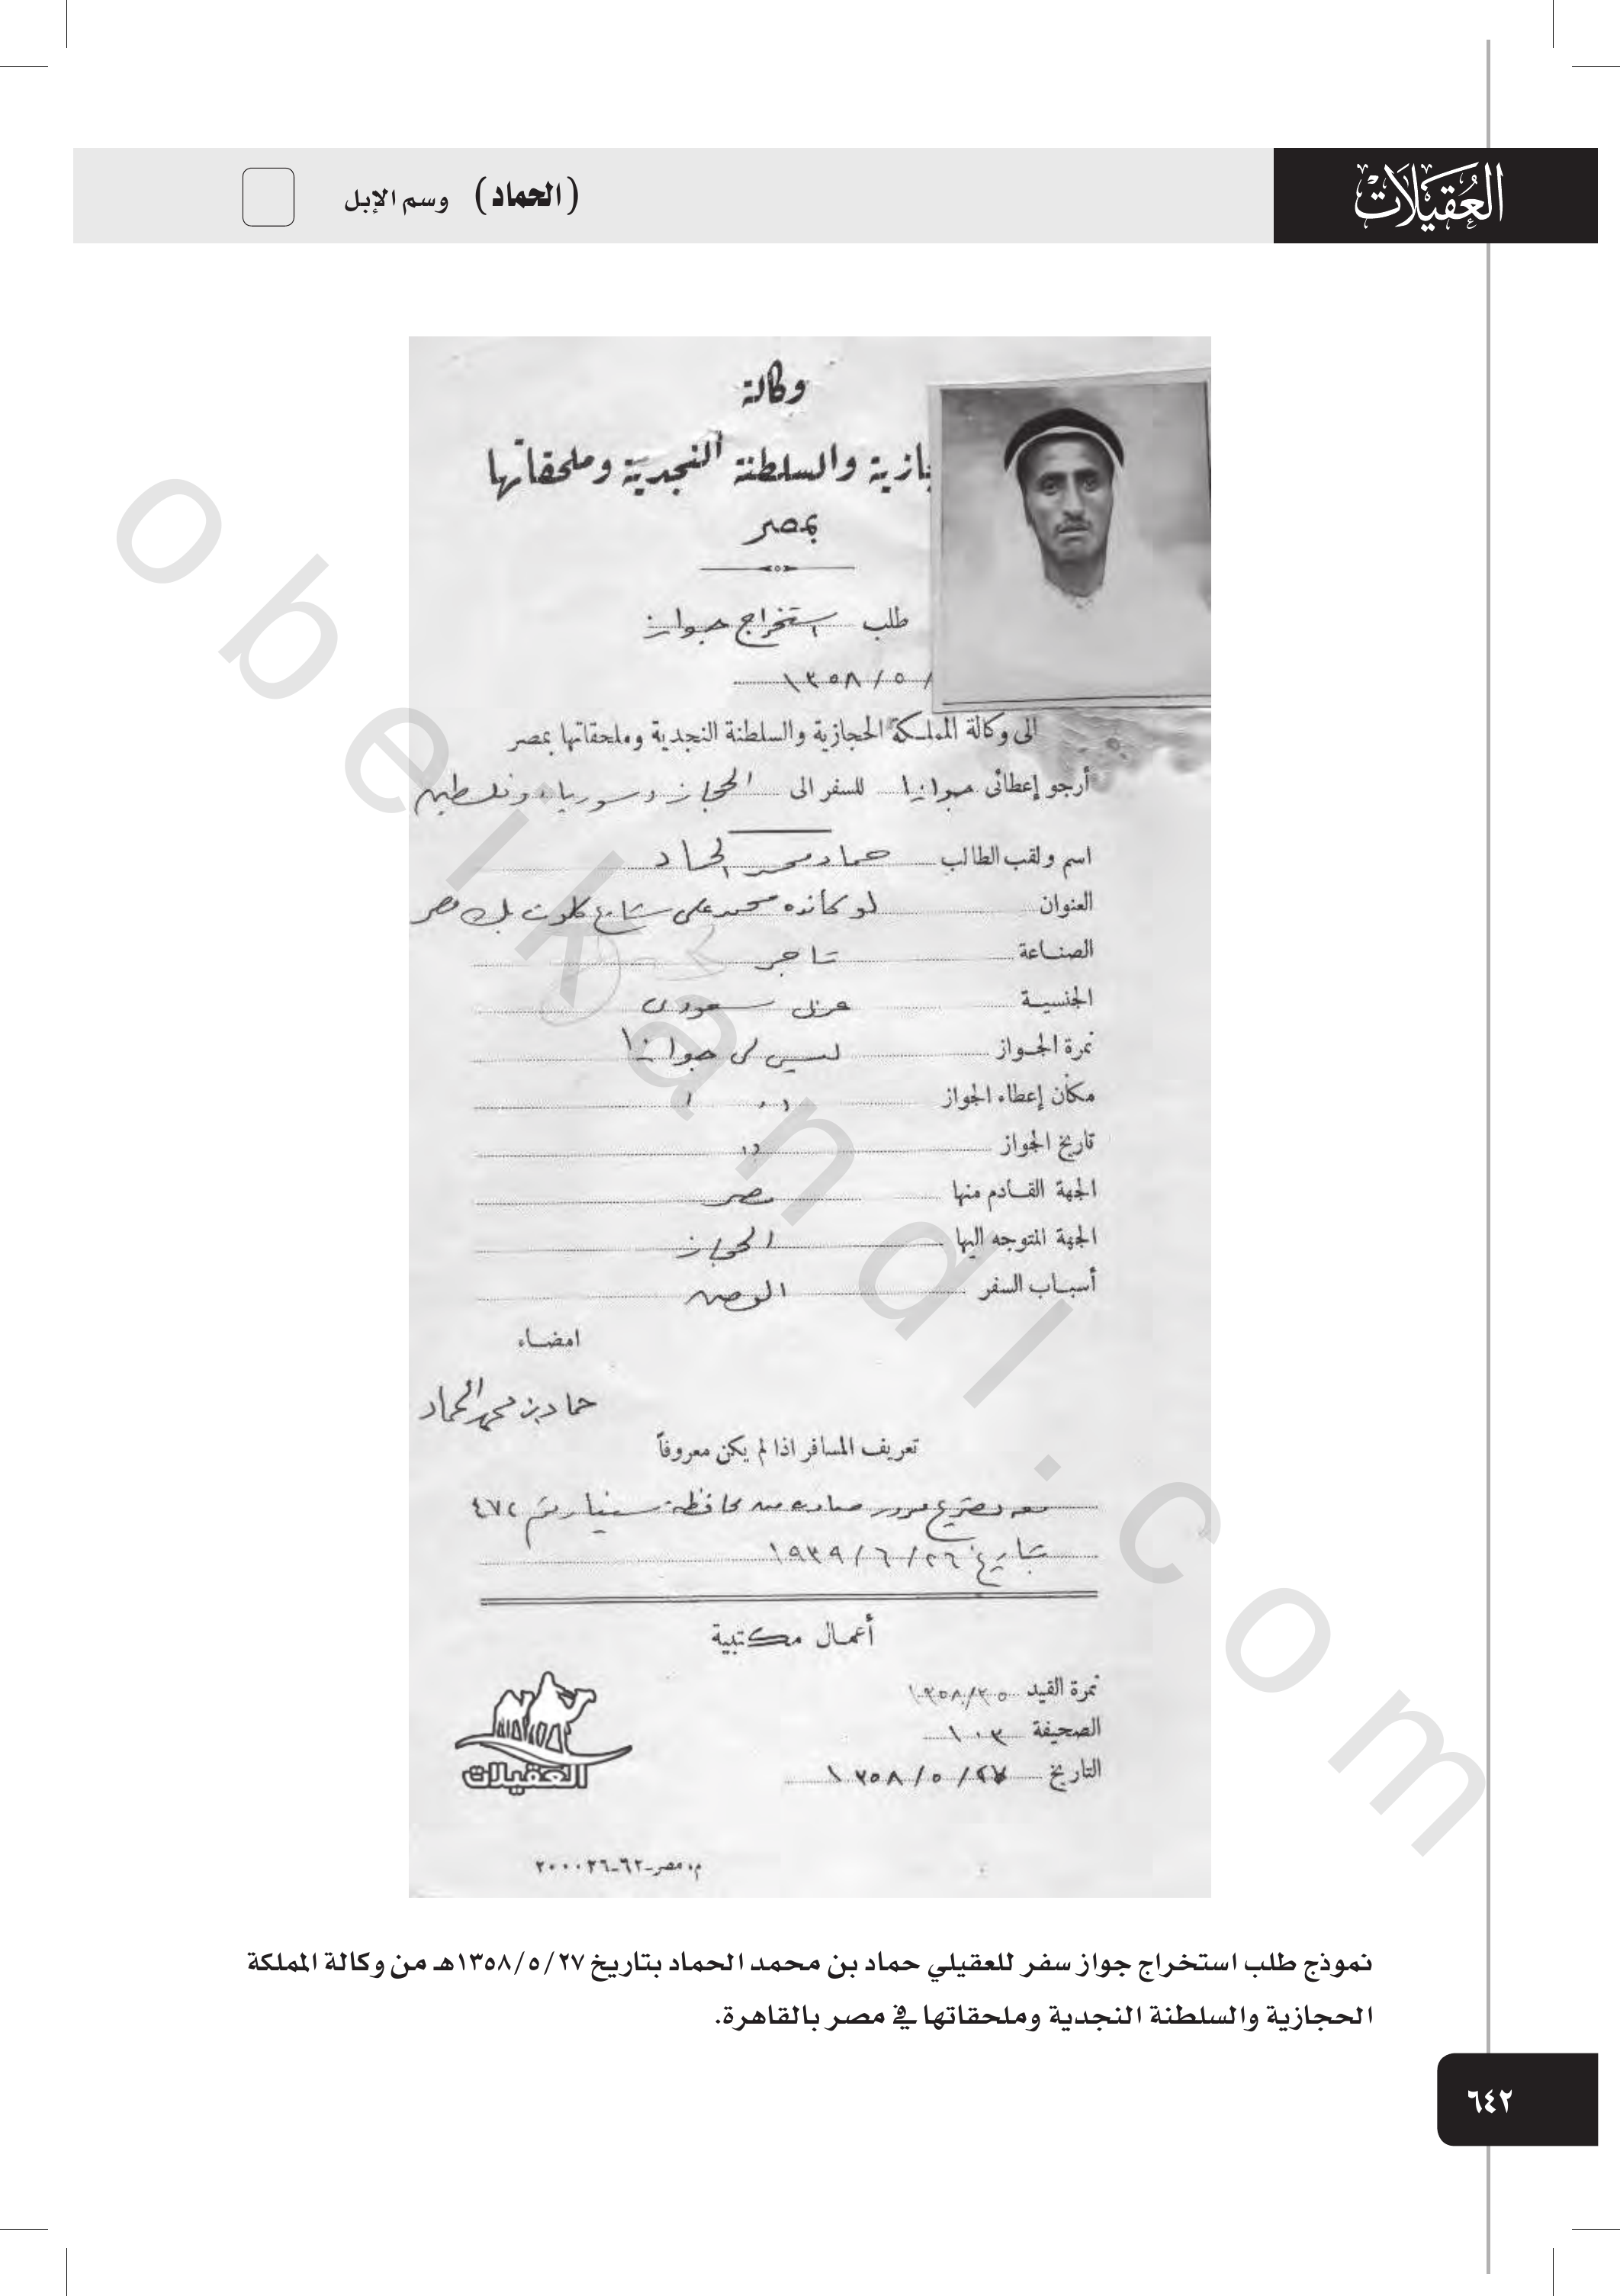 العُقَيْلَاتْ
(الحماد) وسم الإبل
وكالة
جازية والسلطنة النجدية وملحقاتها
بمصر
طلب استخراج جواز
/ ٥ / ١٣٥٨
الى وكالة المملكة الحجازية والسلطنة النجدية وملحقاتها بمصر
أرجو إعطائى جوازا للسفر الى الحجاز وسوريا وفلسطين
اسم ولقب الطالب حماد محمد الحماد
العنوان لوكانده محمد على شارع كلوت بك مصر
الصناعة تاجر
الجنسية عربى سعودى
نمرة الجواز ليس لى جوازا
مكان إعطاء الجواز
تاريخ الجواز
الجهة القادم منها مصر
الجهة المتوجه اليها الحجاز
أسباب السفر الوطن
امضاء
حماد بن محمد الحماد
تعريف المسافر اذا لم يكن معروفاً
معه تصريح مرور صادر من محافظة سينا رقم ٤٧٢
بتاريخ ٢٦ / ٦ / ١٩٣٩
أعمال مكتبية
نمرة القيد ١٣٥٨/٣٥
الصحيفة ١٠٣
التاريخ ٢٧ / ٥ / ١٣٥٨
العقيلات
م. مصر-٦٢-٢٠٠٠٢٦
نموذج طلب استخراج جواز سفر للعقيلي حماد بن محمد الحماد بتاريخ ١٣٥٨/٥/٢٧هـ من وكالة المملكة
الحجازية والسلطنة النجدية وملحقاتها في مصر بالقاهرة.
٦٤٢
obeikandl.com